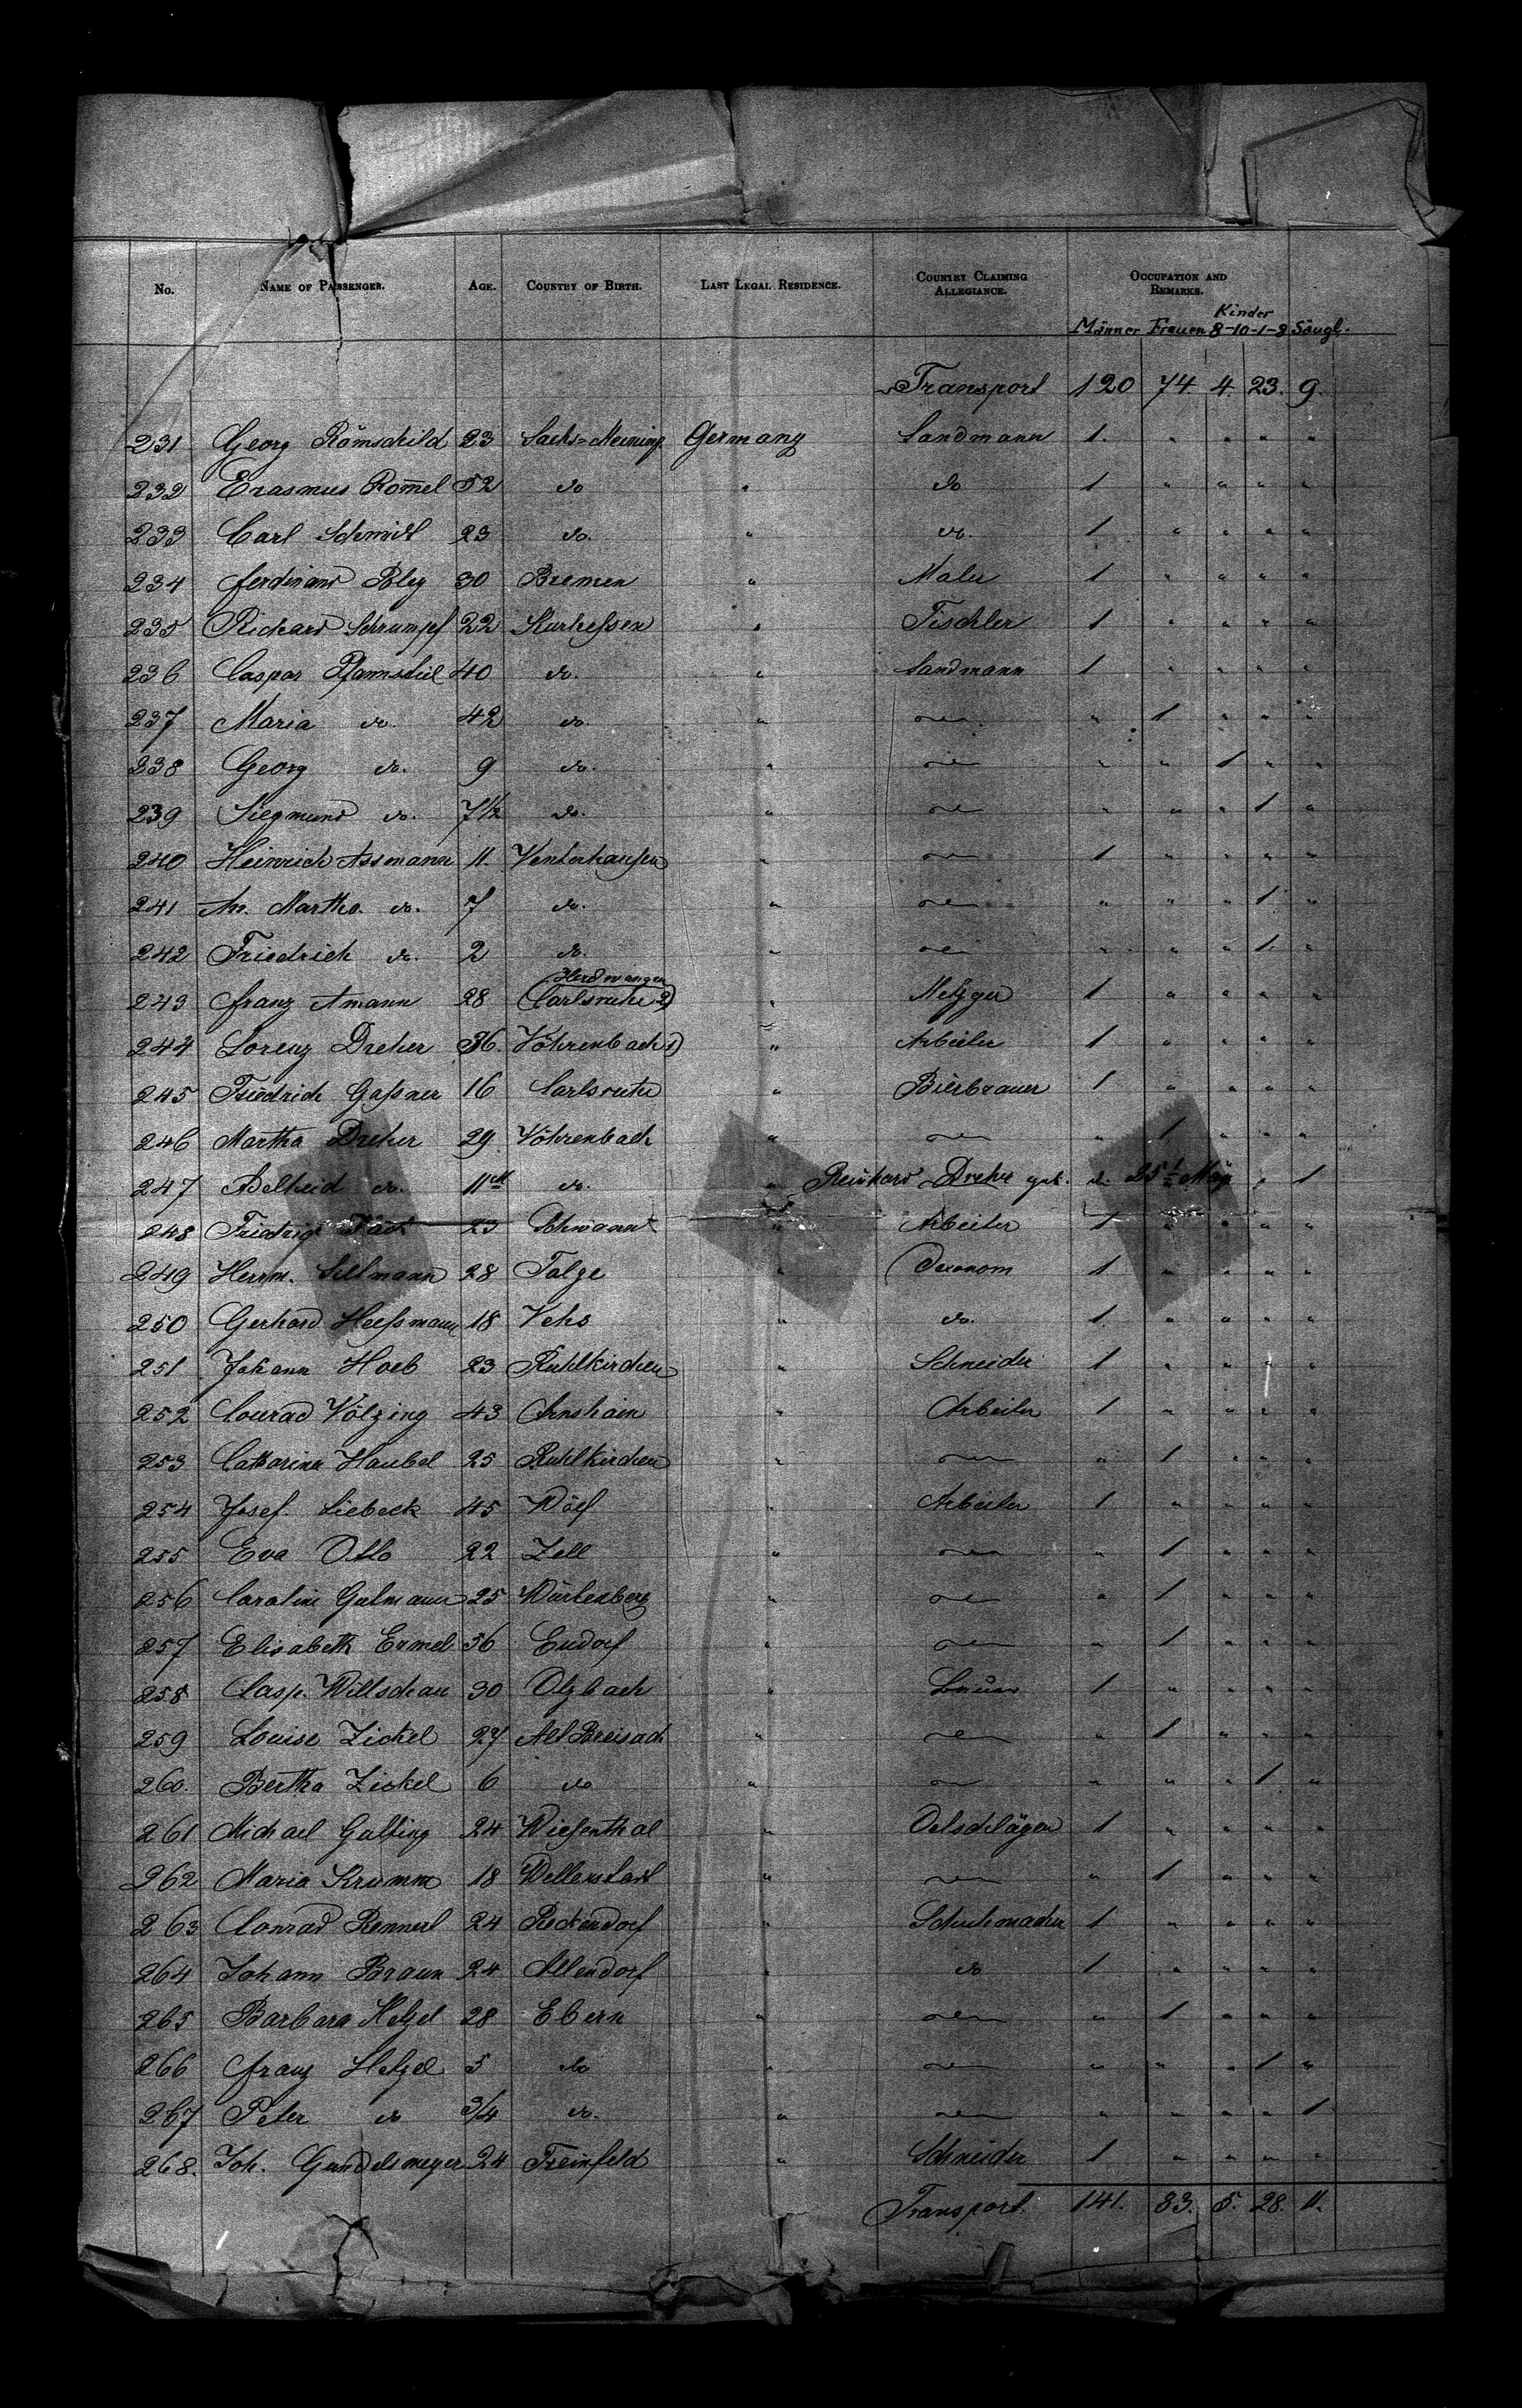 No. NAME OF PASSENGER. AGE. COUNTRY OF BIRTH. LAST LEGAL RESIDENCE. COUNTRY CLAIMING ALLEGIANCE. OCCUPATION AND REMARKS.
Kinder
Männer Frauen 8-10-1-8 Säugl.
Transport 120 74. 4. 23. 9.
231 Georg Römschild 23 Sachs=Meining. Germany Landmann 1. " " " "
232 Erasmus Rom̄el 52 do " do 1 " " " "
233 Carl Schmidt 23 do. " do. 1 " " " "
234 Ferdinand Bley 30 Bremen " Maler 1 " " " "
235 Richard Schrumpf 22 Kurhessen " Tischler 1 " " " "
236 Caspar Pfannstiel 40 do. " Landmann 1 " " " "
237 Maria do. 42 do. " " 1 " " "
238 Georg do. 9 do. " " " 1 " "
239 Siegmund do. 7½ do. " " " " 1 "
240 Heinrich Assmann 11. " 1 " " " "
241 An. Martha do. 7 do. " " " " 1 "
242 Friedrich do. 2 do. " " " " 1. "
Herdwangen
243 Franz Amann 28 (Carlsruhe 2) " Metzger 1 " " " "
244 Lorenz Dreher 36. Vöhrenbach 1) " Arbeiter 1 " " " "
245 Friedrich Gaßner 16 Carlsruhe " Bierbrauer 1 " " " "
246 Martha Dreher 29 Vöhrenbach " " 1 " " "
247 Adelheid do. 11 do. " Reinhard Dreher geb. d. 25 May " 1
248 23 " Arbeiter 1 " " " "
249 Herrm. Sillmann 28 Talge " Oeconom 1 " " " "
250 Gerhard Heeßmann 18 Vehs " do. 1. " " " "
251 Johann Hoeb 23 Ruhlkirchen " Schneider 1 " " " "
252 Conrad Völzing 43 Arnshain " Arbeiter 1 " " " "
253 Catharina Haubel 25 Ruhlkirchen " " 1 " " "
254 Josef. Liebeck 45 Wölf " Arbeiter 1 " " " "
255 Eva Otto 22 Zell " " 1 " " "
256 Caroline Gutmann 25 Würtenberg " " 1 " " "
257 Elisabeth Ermel 56 Eudorf " " 1 " " "
258 Casp. Willschau 30 Olzbach " 1 " " " "
259 Louise Zickel 27 Alt Breisach " " 1 " " "
260. Bertha Zickel 6 do " " " " 1 "
261 Michael Galfing 24 Wiesenthal " Oelschläger 1 " " " "
262 Maria Krumm 18 " " 1 " " "
263 Conrad Rennert 24 Reckendorf " Schuhmacher 1 " " " "
264 Johann Braun 24 Allendorf " do 1. " " " "
265 Barbara Hetzel 28 Ebern " " 1 " " "
266 Franz Hetzel 5 do " " " " 1 "
267 Peter do 3/4 do. " " " " " 1
268. Joh. Gundelsmeyer 24 Treinfeld " Schneider 1 " " " "
Transport. 141. 83. 5. 28. 11.